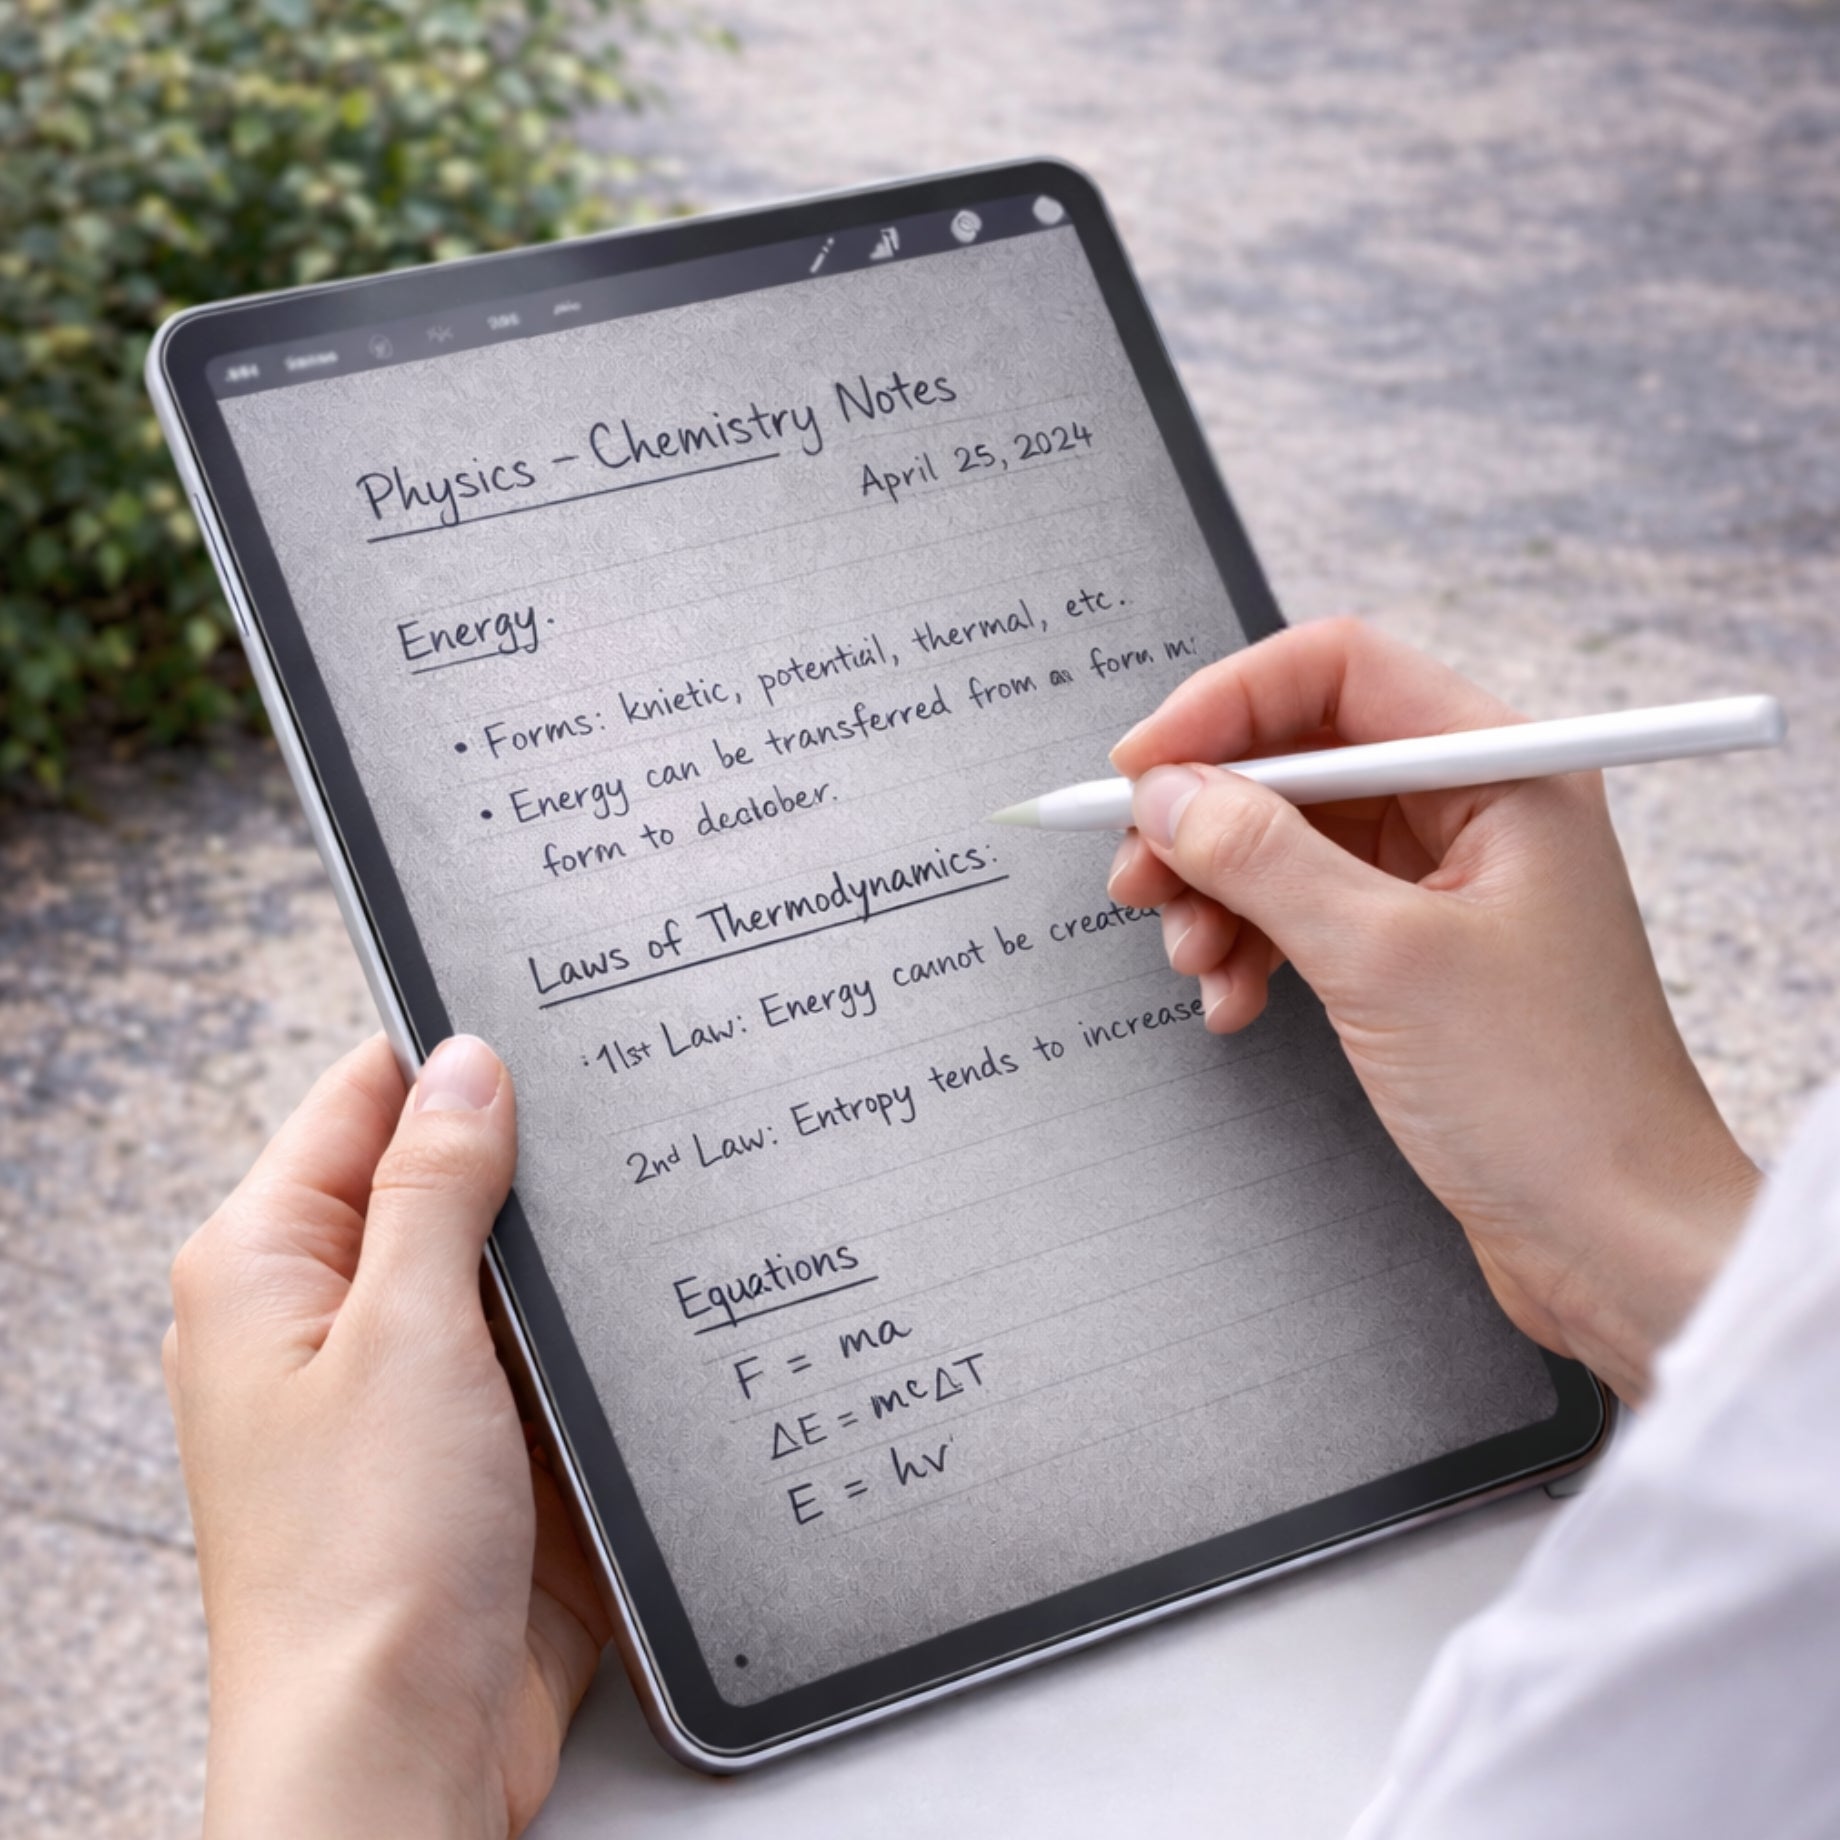 Physics – Chemistry Notes
April 25, 2024
Energy.
• Forms: knietic, potential, thermal, etc.
• Energy can be transferred from form
form to
Laws of Thermodynamics:
Law: Energy cannot be created
2nd Law: Entropy tends to increase
Equations
F = ma
ΔE = mcΔT
E = hv